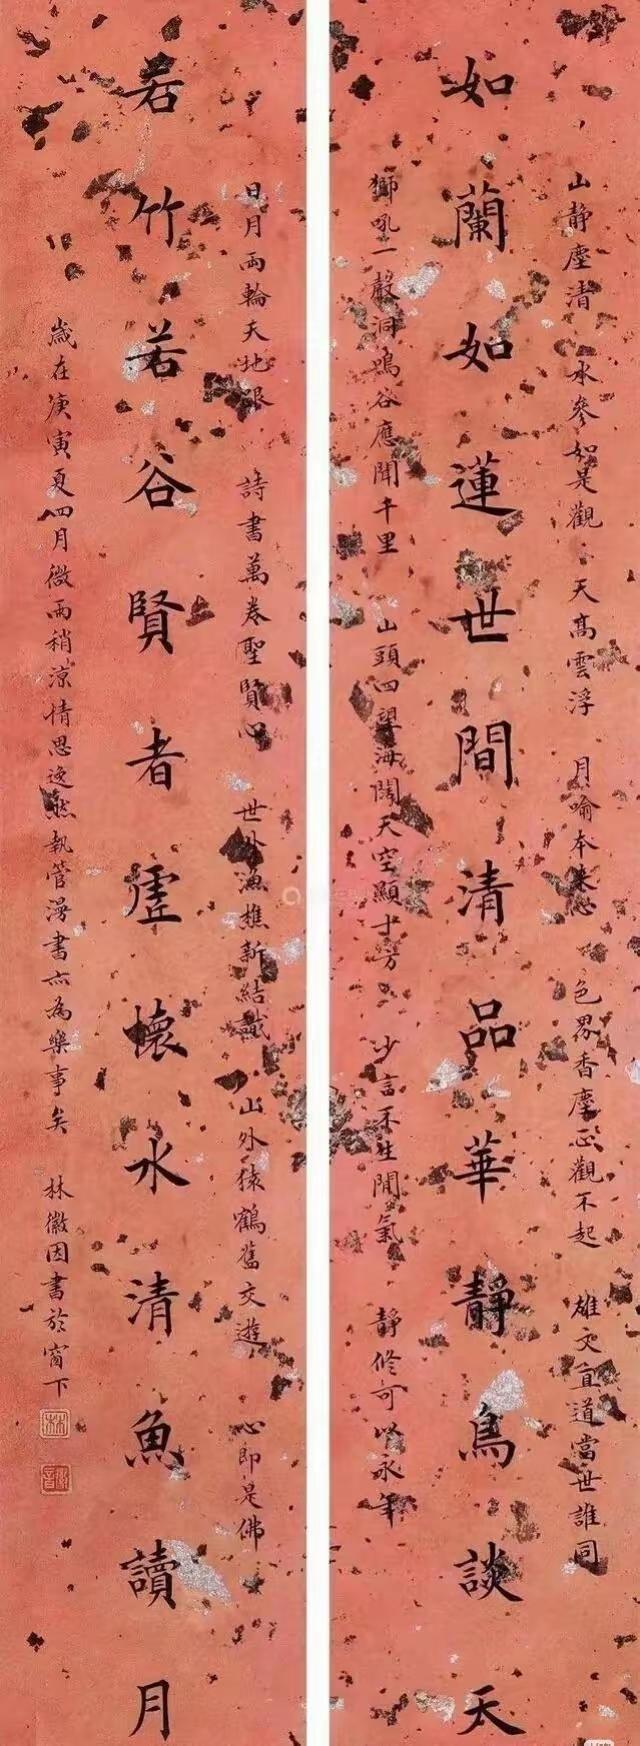 山靜塵清 水參如是觀 天高雲浮 月喻本來心 色界香塵正觀不起 雄文直道當世誰同
如蘭如蓮世間清品華靜鳥談天
獅吼一聲洞鳴谷應聞千里 山頭四望海闊天空顯十方 少言不生閒氣 靜修可以永年
日月兩輪天地眼 詩書萬卷聖賢心 世外漁樵新結識 山外猿鶴舊交遊 心即是佛
若竹若谷賢者虛懷水清魚讀月
歲在庚寅夏四月微雨稍涼情思逸然執管漫書亦為樂事矣 林徽因書於窗下